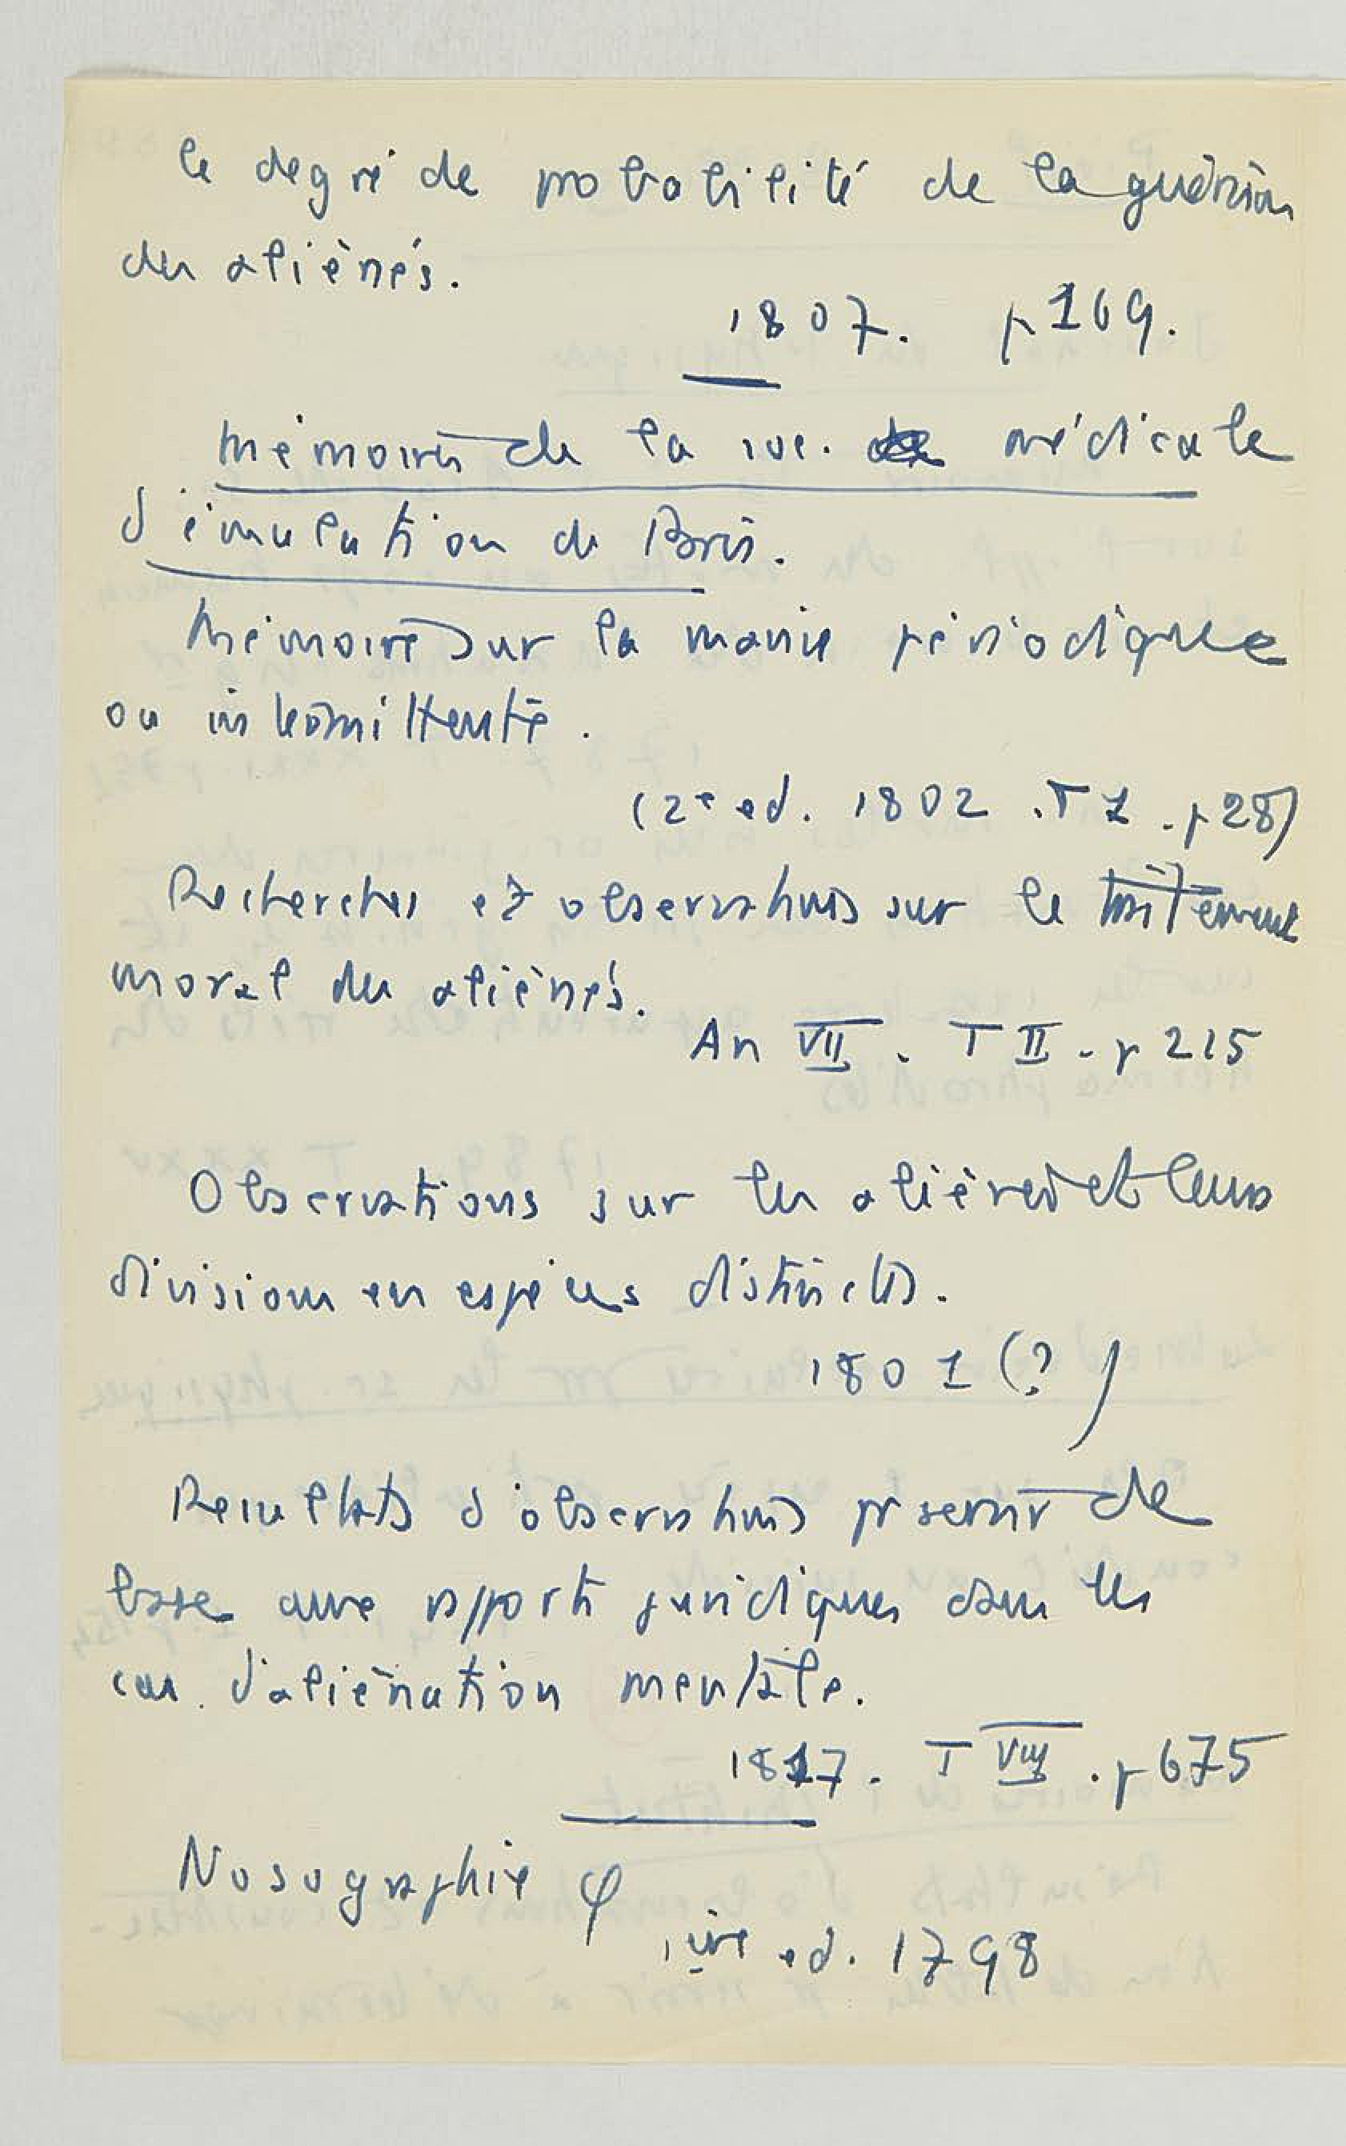 le degré de probabilité de la guérison
des aliénés.
1807. p 169.
Mémoires de la soc. médicale
d'émulation de Paris.
Mémoire sur la manie périodique
ou intermittente.
(2e ed. 1802. T 1. p 28)
Recherches et observations sur le traitement
moral des aliénés.
An VII. T II - p 215
Observations sur les aliénés et leurs
divisions en espèces distinctes.
1801 (?)
Resultats d'observations pr servir de
base aux rapports juridiques dans les
cas d'aliénation mentale.
1817. T VIII. p 675
Nosographie φ
1ère ed. 1798